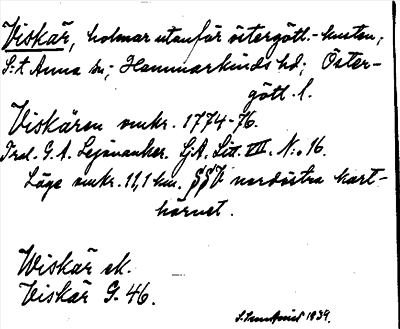 Viskär, holmar utanför östergötl.-kusten;
S:t Anna sn; Hammarkinds hd; Öster-
götl. l.
Viskären omkr. 1774-76.
G. A. GA. Litt. VIII. N:o 16.
Läge omkr. 11,1 km. SSV nordöstra kart-
hörnet.
Wiskär ek.
Viskär G. 46.
1939.